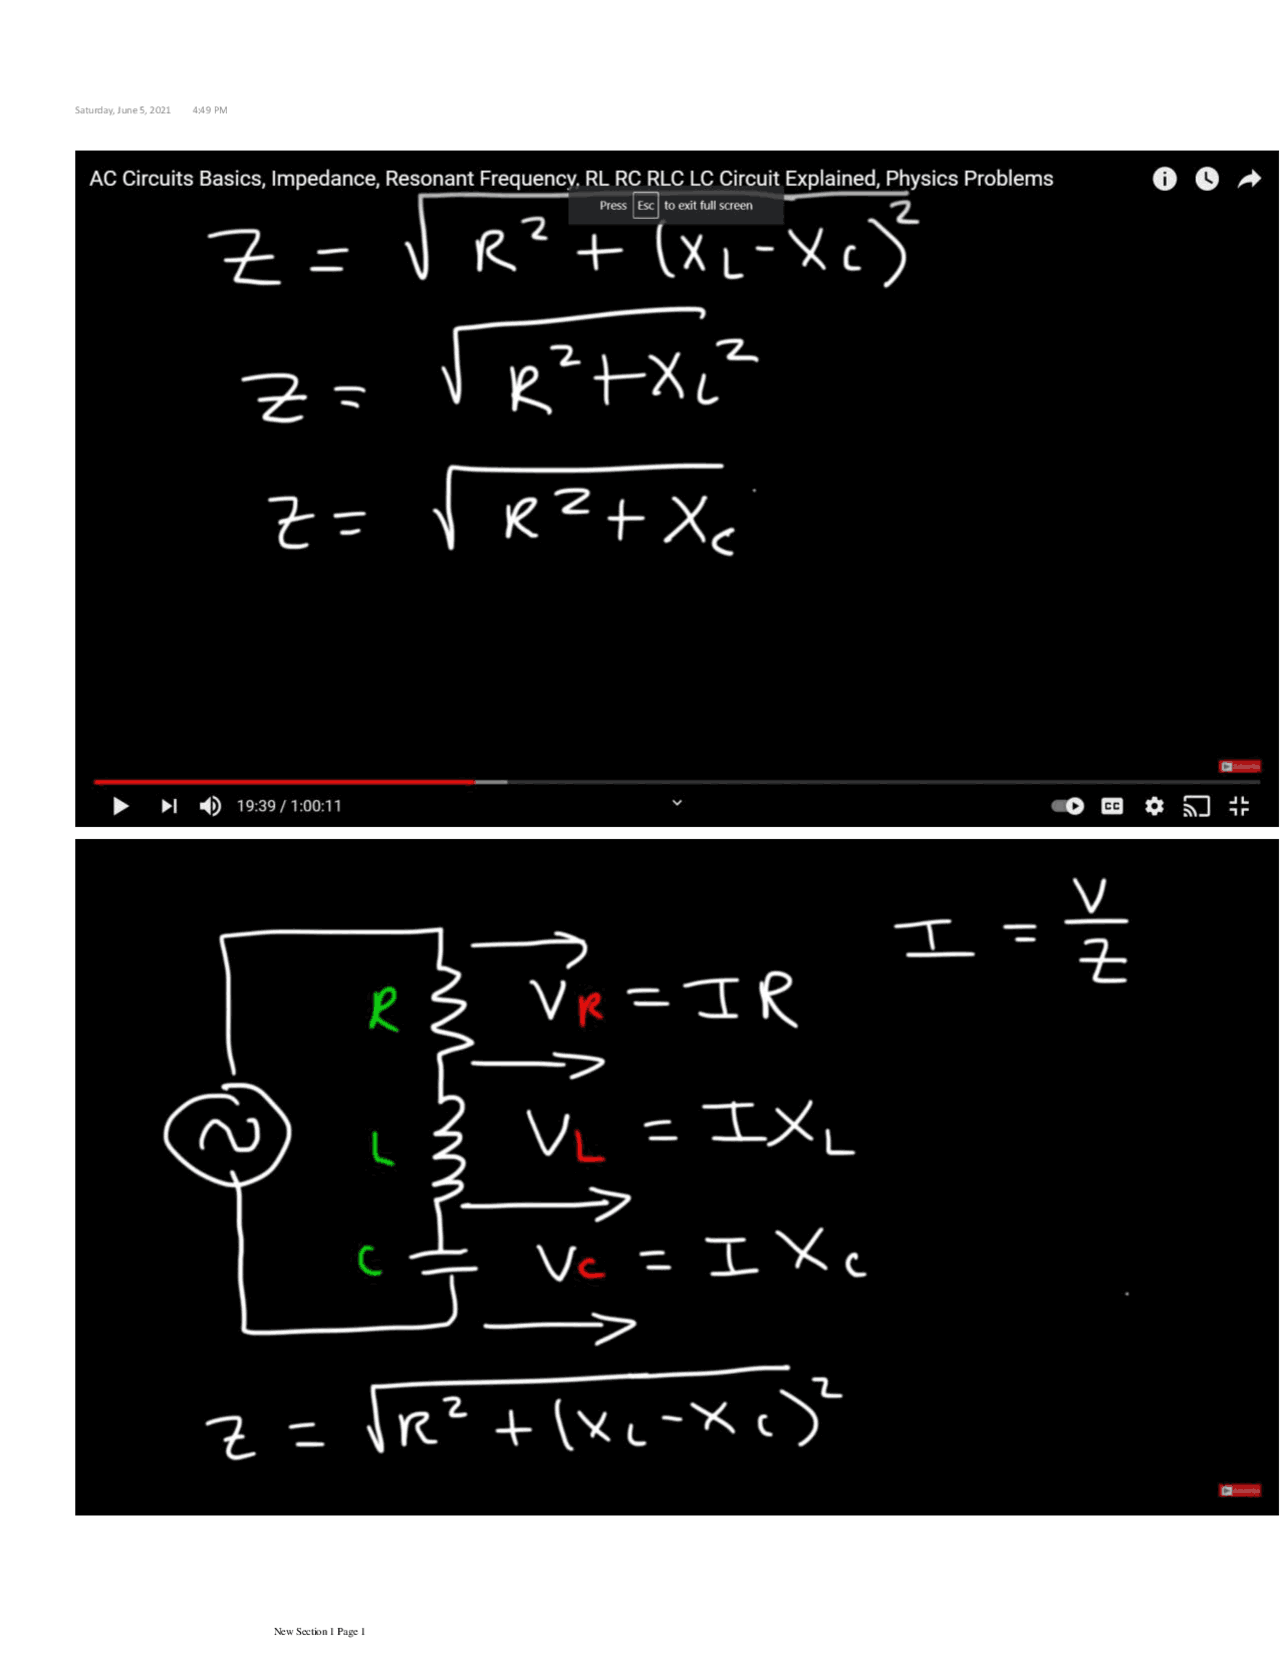 Saturday, June 5, 2021 4:49 PM
AC Circuits Basics, Impedance, Resonant Frequency, RL RC RLC LC Circuit Explained, Physics Problems
Press Esc to exit full screen
Z = √R² + (X_L - X_C)²
Z = √R² + X_L²
Z = √R² + X_C
19:39 / 1:00:11
CC
I = V/Z
R V_R = IR
L V_L = IX_L
C V_C = IX_C
Z = √R² + (X_L - X_C)²
New Section 1 Page 1